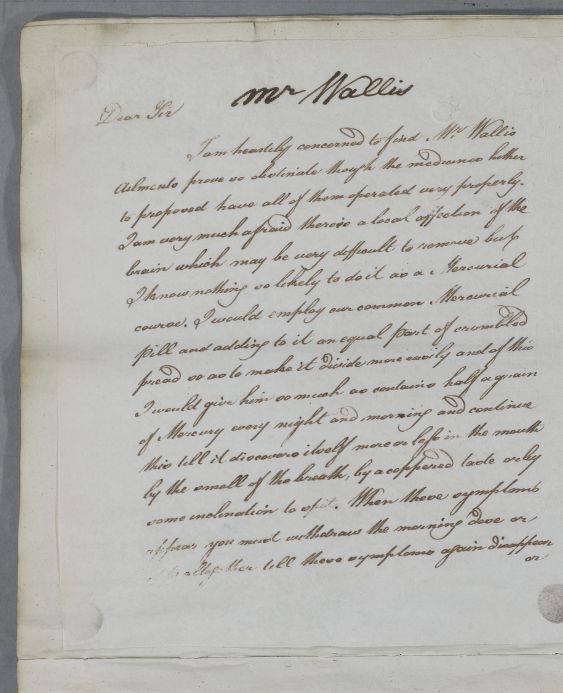 Mr Wallis
Dear Sir
I am heartily concerned to find Mr. Wallis
Ailments prove so obstinate though the medicines hither
to proposed have all of them operated very properly.
I am very much afraid there is a local affection of the
brain which may be very difficult to remove but
I know nothing so likely to do it as a Mercurial
course. I would employ our common Mercurial
pill and adding to it an equal part of crumbled
bread so as to make it divide more easily and of this
I would give him so much as contains half a grain
of Mercury every night and morning and continue
this till it discovers itself more or less in the mouth
by the smell of the breath, by a coppered taste or by
some inclination to spit. When these symptoms
appear you must withdraw the morning dose or
altogether till these symptoms again disappear
or